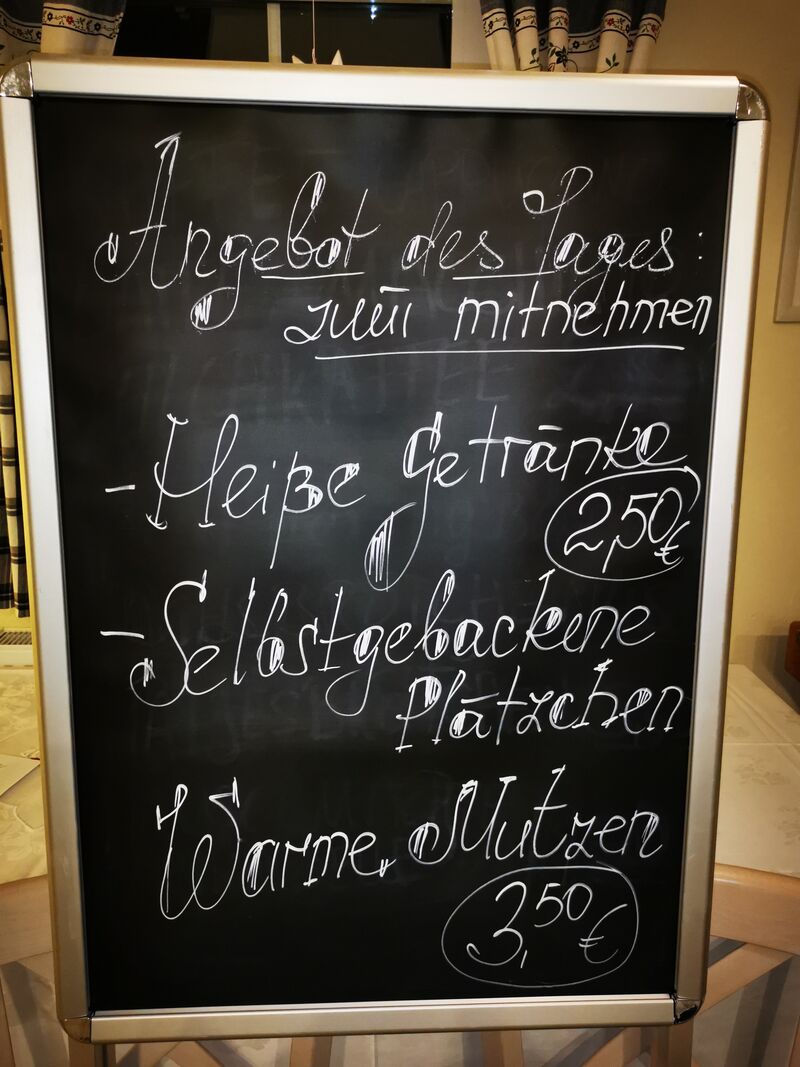 Angebot des Tages:
zum mitnehmen
- Heiße Getränke
2,50€
- Selbstgebackene
Plätzchen
Warme Mutzen
3,50€